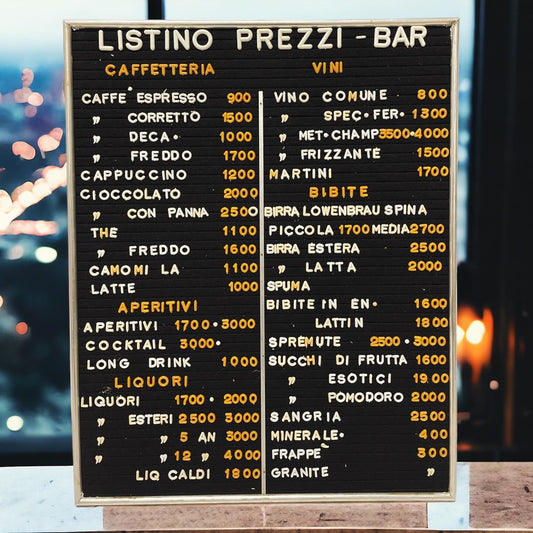 LISTINO PREZZI - BAR
CAFFETTERIA
CAFFE' ESPRESSO 900
" CORRETTO 1500
" DECA. 1000
" FREDDO 1700
CAPPUCCINO 1200
CIOCCOLATO 2000
" CON PANNA 2500
THE 1100
" FREDDO 1600
CAMOMI LA 1100
LATTE 1000
APERITIVI
APERITIVI 1700.3000
COCKTAIL 3000.
LONG DRINK 1000
LIQUORI
LIQUORI 1700. 2000
" ESTERI 2500 3000
" " 5 AN 3000
" " 12 " 4000
LIQ CALDI 1800
VINI
VINO COMUNE 800
" SPEC. FER. 1300
" MET.CHAMP 3500.4000
" FRIZZANTE 1500
MARTINI 1700
BIBITE
BIRRA LOWENBRAU SPINA
PICCOLA 1700 MEDIA 2700
BIRRA ESTERA 2500
" LATTA 2000
SPUMA
BIBITE IN EN. 1600
LATTIN 1800
SPREMUTE 2500.3000
SUCCHI DI FRUTTA 1600
" ESOTICI 19.00
" POMODORO 2000
SANGRIA 2500
MINERALE. 400
FRAPPE' 300
GRANITE "